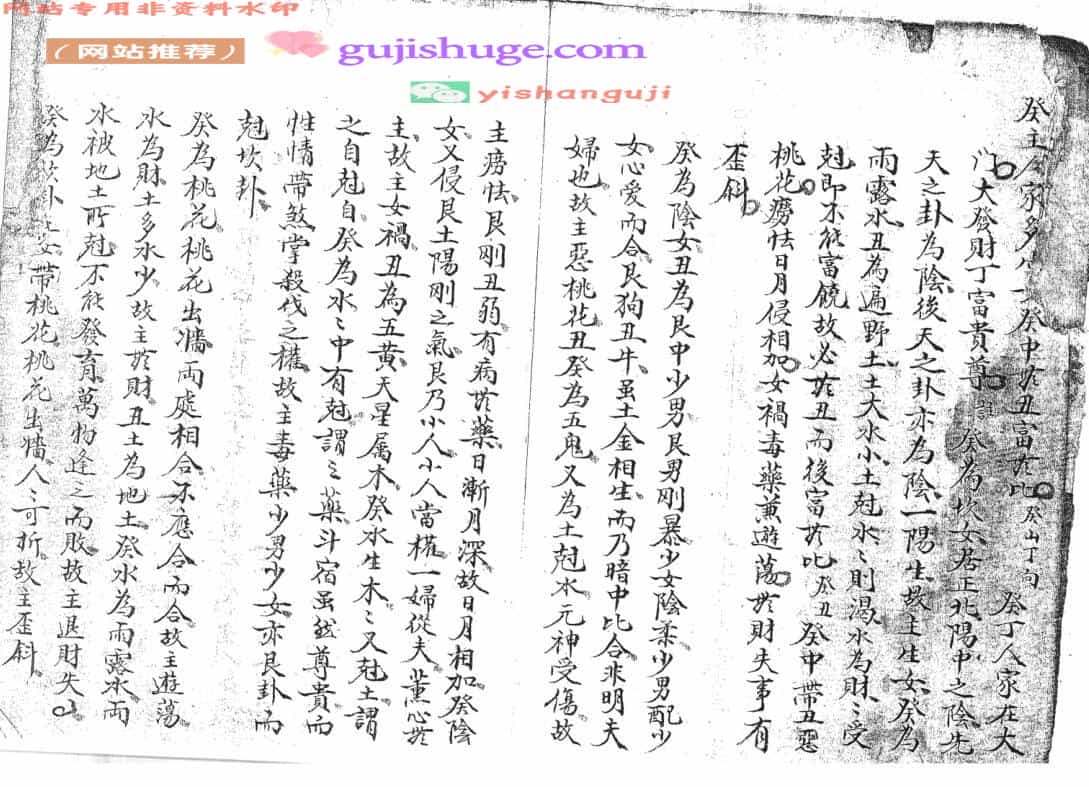 网站专用非资料水印
（网站推荐）
gujishuge.com
yishanguji
癸主人家多少女癸中於丑富於比癸山丁向癸丁人家在大
門大發財丁富貴尊 癸為坎女居正北陽中之陰先
天之卦為陰後天之卦亦為陰一陽生故主生女癸為
雨露水丑為遍野土土大水小土尅水〻則渴水為財〻受
尅即不能富饒故必於丑而後富於比癸丑癸中帶丑惡
桃花癆怯日月侵相加女禍毒藥薰遊蕩於財失事有
歪斜
癸為陰女丑為艮中少男艮男刚暴少女陰柔少男配少
女心愛而合艮狗丑牛虽土金相生而乃暗中比合非明夫
婦也故主惡桃花丑癸為五鬼又為土尅水元神受傷故
主癆怯艮刚丑弱有病於藥日漸月深故日月相加癸陰
女又侵艮土陽刚之氣艮乃小人小人當權一婦從夫薰心於
主故主女禍丑為五黄天星属木癸水生木〻又尅土謂
之自尅自癸為水〻中有尅謂〻藥斗宿虽然尊貴而
性情帶煞掌殺伐之權故主毒藥少男少女亦艮卦而
尅坎卦
癸為桃花桃花出牆兩處相合不應合而合故主遊蕩
水為財土多水少故主於財丑土為地土癸水為雨露水雨
水被地土所尅不能發育萬物逢之而敗故主退財失山
癸為坎卦主女帶桃花桃花出牆人〻可折故主歪斜